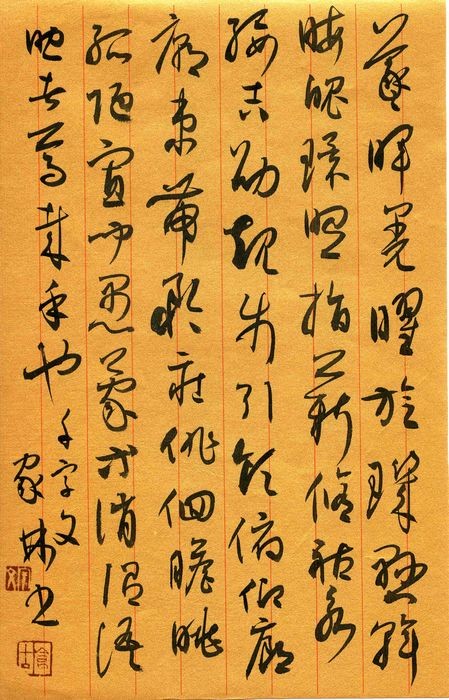 羲暉晃曜旋璣懸斡
晦魄環照指薪修祜永
綏吉劭矩步引領俯仰廊
廟束帶矜莊徘徊瞻眺
孤陋寡聞愚蒙等誚謂語
助者焉哉乎也千字文
家林书